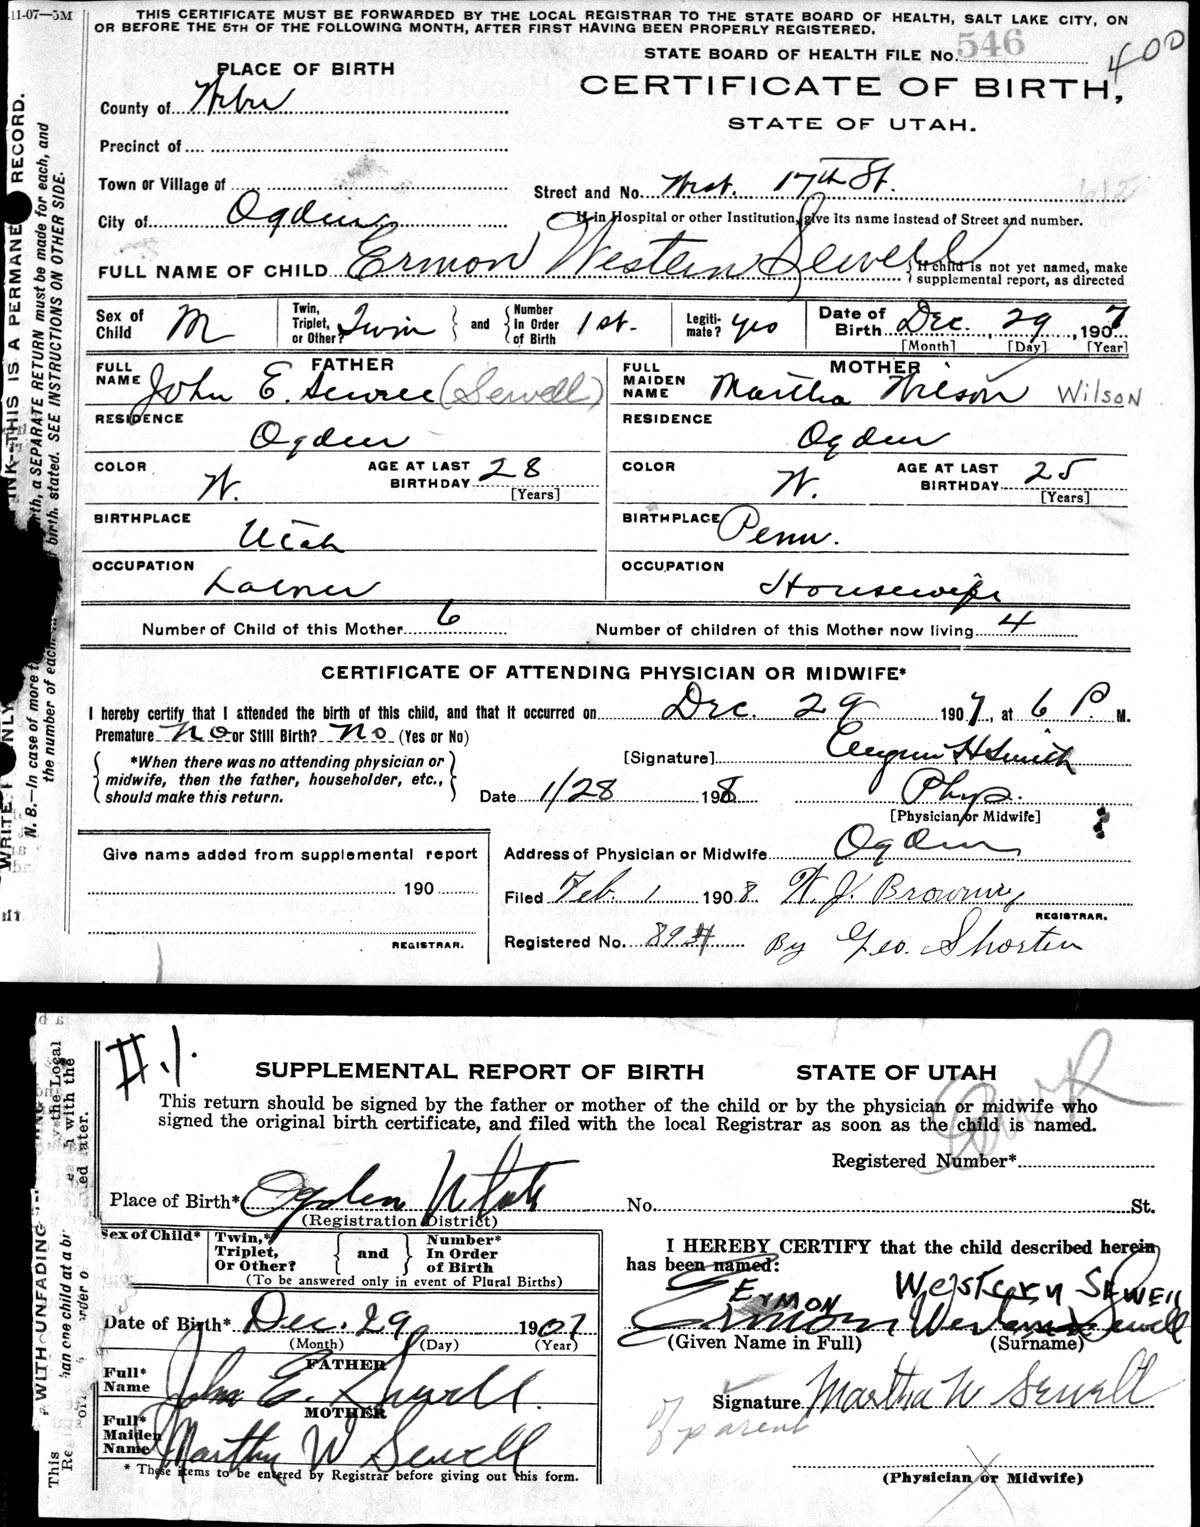 11-07-5M
THIS CERTIFICATE MUST BE FORWARDED BY THE LOCAL REGISTRAR TO THE STATE BOARD OF HEALTH, SALT LAKE CITY, ON
OR BEFORE THE 5TH OF THE FOLLOWING MONTH, AFTER FIRST HAVING BEEN PROPERLY REGISTERED.
STATE BOARD OF HEALTH FILE No. 546
400
PLACE OF BIRTH
CERTIFICATE OF BIRTH,
STATE OF UTAH.
County of Weber
Precinct of
Town or Village of
Street and No. West. 17th St.
City of Ogden
If in Hospital or other Institution, give its name instead of Street and number.
FULL NAME OF CHILD Ermon Western Sewell
If child is not yet named, make
supplemental report, as directed
Sex of Child M
Twin, Triplet, or Other? Twin and Number In Order of Birth 1st.
Legiti-mate? yes
Date of Birth Dec. 29, 1907
[Month] [Day] [Year]
FATHER
FULL NAME John E. (Sewell)
MOTHER
FULL MAIDEN NAME Martha Wilson Wilson
RESIDENCE Ogden
RESIDENCE Ogden
COLOR W. AGE AT LAST BIRTHDAY 28 [Years]
COLOR W. AGE AT LAST BIRTHDAY 25 [Years]
BIRTHPLACE Utah
BIRTHPLACE Penn.
OCCUPATION Laborer
OCCUPATION Housewife
Number of Child of this Mother 6 Number of children of this Mother now living 4
CERTIFICATE OF ATTENDING PHYSICIAN OR MIDWIFE*
I hereby certify that I attended the birth of this child, and that it occurred on Dec. 29 1907, at 6 P. M.
Premature No or Still Birth? No (Yes or No)
*When there was no attending physician or
midwife, then the father, householder, etc.,
should make this return.
[Signature] H Smith
Date 1/28 1908 Phys.
[Physician or Midwife]
Give name added from supplemental report
190
REGISTRAR.
Address of Physician or Midwife Ogden
Filed Feb. 1 1908. W. J. Browning
REGISTRAR.
Registered No. By Geo. Shorten
WRITE ONLY INK—THIS IS A PERMANE RECORD.
N. B.—In case of more t birth, a SEPARATE RETURN must be made for each, and
the number of each birth, stated. SEE INSTRUCTIONS ON OTHER SIDE.
#.1.
SUPPLEMENTAL REPORT OF BIRTH STATE OF UTAH
This return should be signed by the father or mother of the child or by the physician or midwife who
signed the original birth certificate, and filed with the local Registrar as soon as the child is named.
Registered Number*
Place of Birth* Ogden Utah No. St.
(Registration District)
Sex of Child*
Twin,* Triplet, Or Other? and Number* In Order of Birth
(To be answered only in event of Plural Births)
Date of Birth* Dec. 29 1907
(Month) (Day) (Year)
FATHER
Full* Name John E. Sewell.
MOTHER
Full* Maiden Name Martha W Sewell
* These items to be entered by Registrar before giving out this form.
I HEREBY CERTIFY that the child described herein
has been named:
Ermon Western Sewell
Ermon Western Sewell
(Given Name in Full) (Surname)
Signature Martha W Sewell
of parent
(Physician or Midwife)